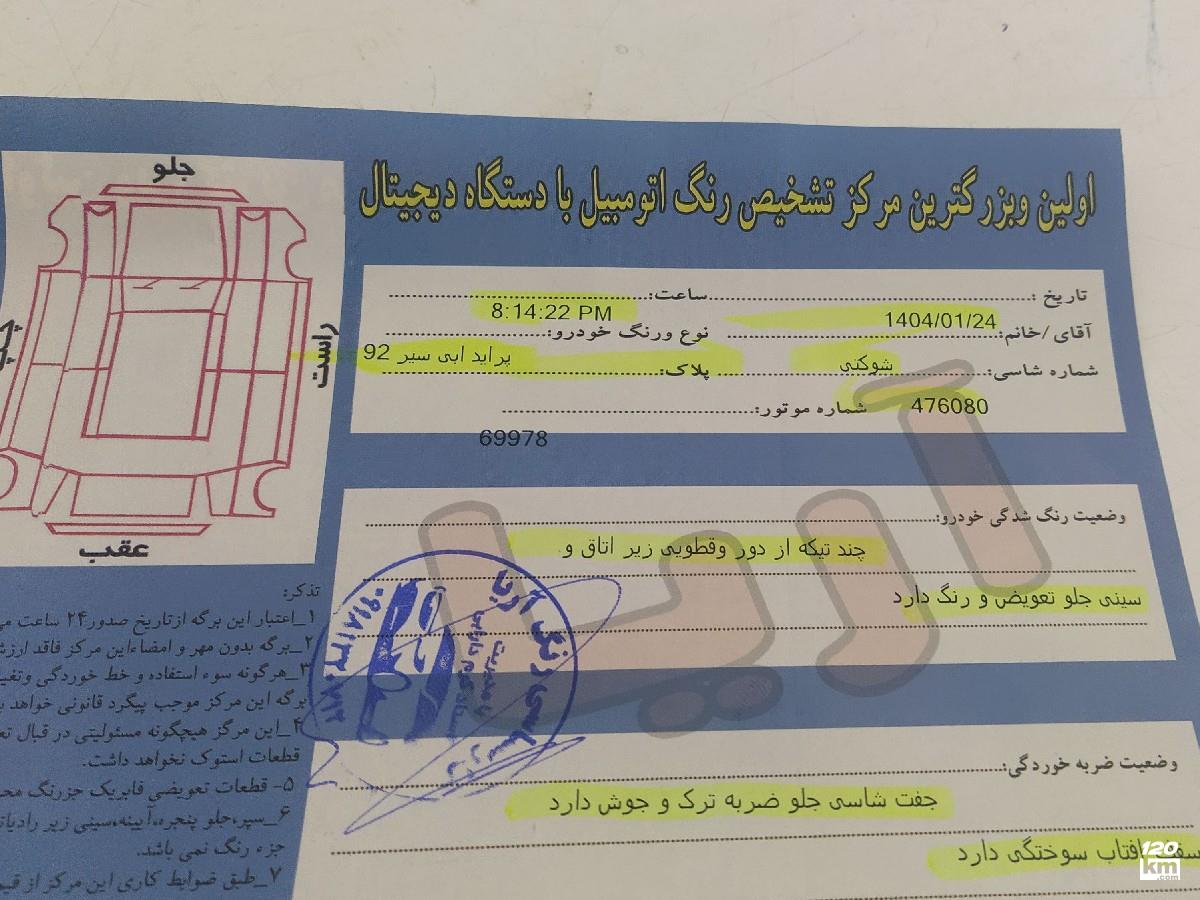 اولین وبزرگترین مرکز تشخیص رنگ اتومبیل با دستگاه دیجیتال
جلو
راست
عقب
تاریخ : ساعت:
1404/01/24 8:14:22 PM
آقای /خانم: نوع ورنگ خودرو:
شوکتی پراید ابی سیر 92
شماره شاسی: پلاک:
476080 شماره موتور:
69978
وضعیت رنگ شدگی خودرو:
چند تیکه از دور وقطویی زیر اتاق و
سینی جلو تعویض و رنگ دارد
آریا
وضعیت ضربه خوردگی:
جفت شاسی جلو ضربه ترک و جوش دارد
افتاب سوختگی دارد
تذکر:
۱_اعتبار این برگه ازتاریخ صدور۲۴ ساعت
۲_برگه بدون مهر و امضاءاین مرکز فاقد
۳_هرگونه سوء استفاده و خط خوردگی
برگه این مرکز موجب پیگرد قانونی خواهد
۴_این مرکز هیچگونه مسئولیتی در قبال
قطعات استوک نخواهد داشت.
۵- قطعات تعویضی فابریک جزرنگ
۶_سپر،جلو پنجره،آیینه،سینی زیر
جزء رنگ نمی باشد.
۷_طبق ضوابط کاری این مرکز از
120
km
.com